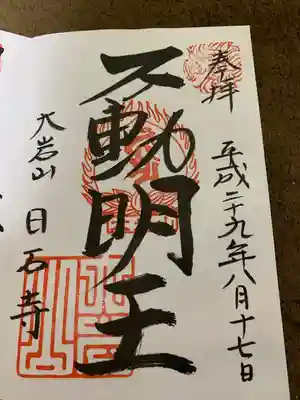 奉拝
平成二十九年八月十七日
不動明王
大岩山
日石寺